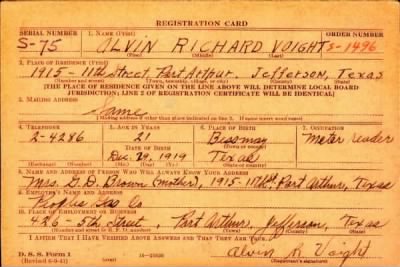 REGISTRATION CARD
SERIAL NUMBER 1. NAME (Print) ORDER NUMBER
S-75 ALVIN RICHARD VOIGHT S-1496
(First) (Middle) (Last)
2. PLACE OF RESIDENCE (Print)
1915-11th Street, Port Arthur, Jefferson, Texas
(Number and street) (Town, township, village, or city) (County) (State)
[THE PLACE OF RESIDENCE GIVEN ON THE LINE ABOVE WILL DETERMINE LOCAL BOARD
JURISDICTION; LINE 2 OF REGISTRATION CERTIFICATE WILL BE IDENTICAL]
3. MAILING ADDRESS
Same
[Mailing address if other than place indicated on line 2. If same insert word same]
4. TELEPHONE 5. AGE IN YEARS 6. PLACE OF BIRTH 7. OCCUPATION
2-4286 21 Meter reader
DATE OF BIRTH (Town or county)
Dec. 29, 1919 Texas
(Exchange) (Number) (Mo.) (Day) (Yr.) (State or country)
8. NAME AND ADDRESS OF PERSON WHO WILL ALWAYS KNOW YOUR ADDRESS
Mrs. G. D. Brown (mother), 1915-11th St. Port Arthur, Texas
9. EMPLOYER'S NAME AND ADDRESS
Peoples Gas Co
10. PLACE OF EMPLOYMENT OR BUSINESS
426-5th Street, Port Arthur, Jefferson, Texas
(Number and street or R. F. D. number) (Town) (County) (State)
I AFFIRM THAT I HAVE VERIFIED ABOVE ANSWERS AND THAT THEY ARE TRUE.
D. S. S. Form 1
(Revised 6-9-41) Alvin R. Voight